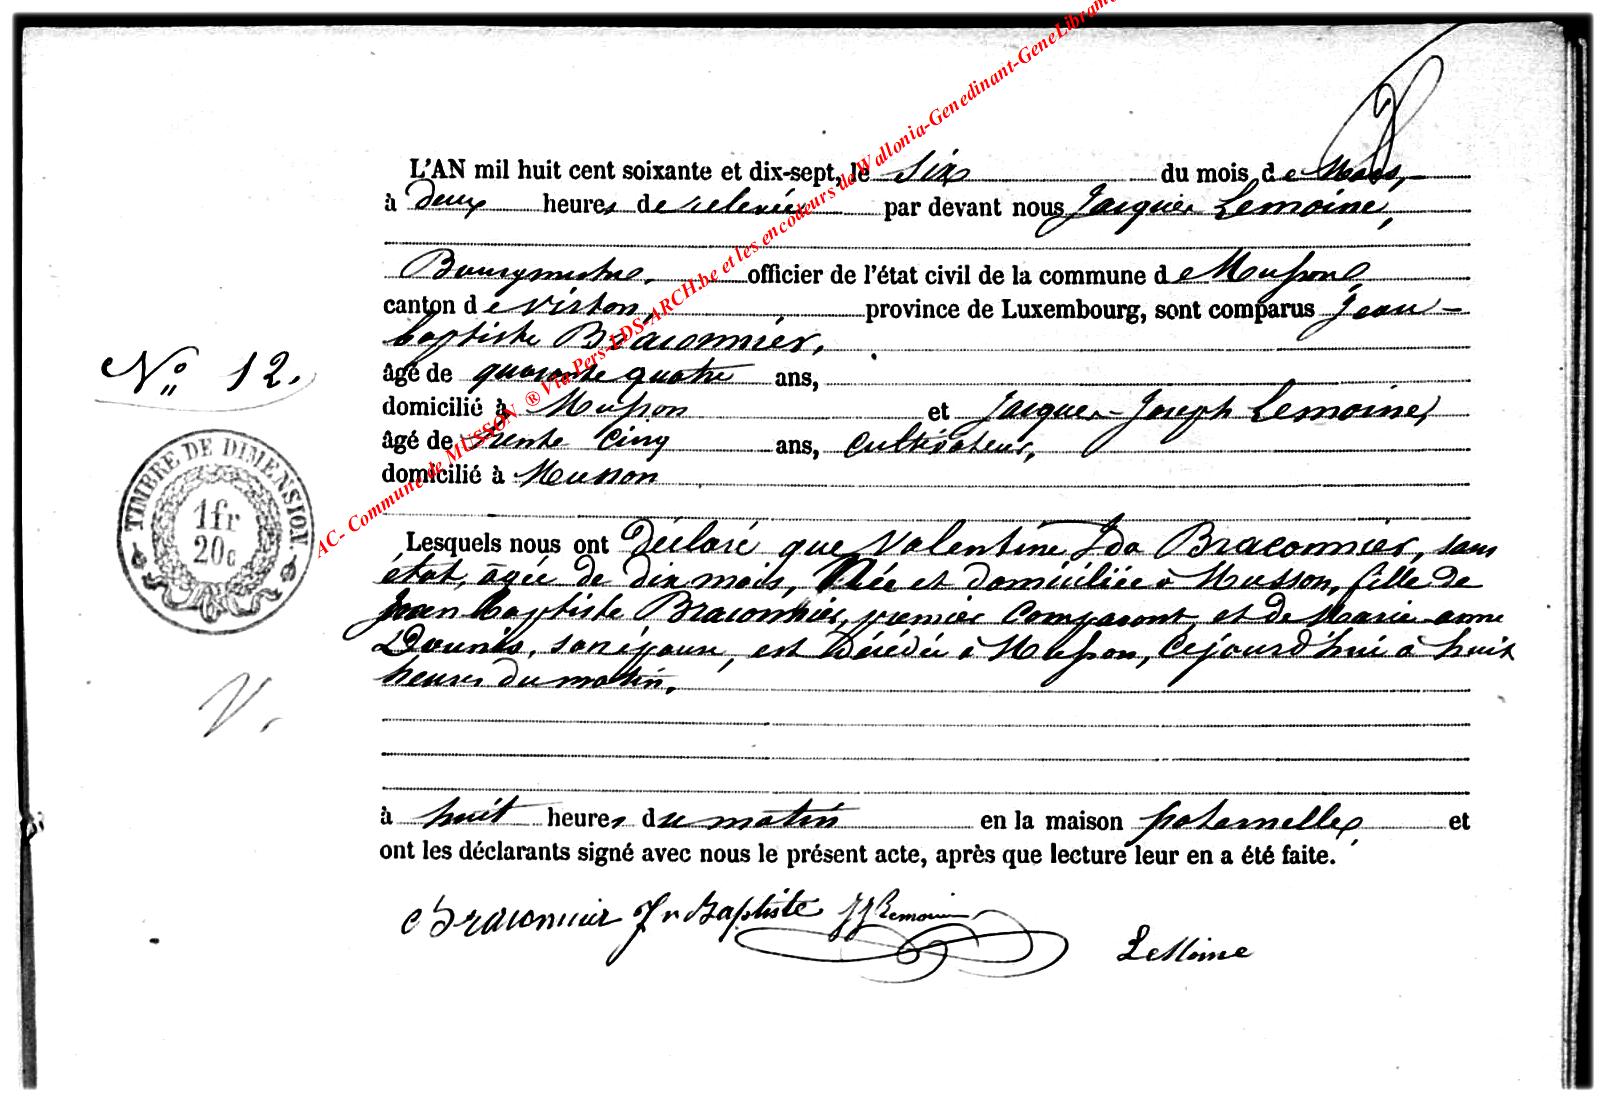 L'AN mil huit cent soixante et dix-sept, le six du mois de Mars,
à deux heures de relevée par devant nous Jacques Lemoine,
Bourgmestre, officier de l'état civil de la commune de Musson,
canton de Virton, province de Luxembourg, sont comparus Jean-
baptiste Braconnier,
N° 12.
âgé de quarante quatre ans,
domicilié à Musson et Jacques-Joseph Lemoine,
âgé de trente cinq ans, cultivateur,
domicilié à Musson
TIMBRE DE DIMENSION.
1fr
20c
Lesquels nous ont déclaré que Valentine Ida Braconnier, sans
état, âgée de dix mois, Née et domiciliée à Musson, fille de
Jean baptiste Braconnier, premier comparant, et de Marie-anne
son épouse, est décédée à Musson, cejourd'hui à huit
heures du matin.
V.
à huit heures du matin en la maison paternelle et
ont les déclarants signé avec nous le présent acte, après que lecture leur en a été faite.
Braconnier Jn Baptiste JJ Lemoine
LeMoine
AC- Commune de MUSSON ® Via Pers-LDS-ARCH.be et les encodeurs de Wallonia-Genedinant-GeneLibramo